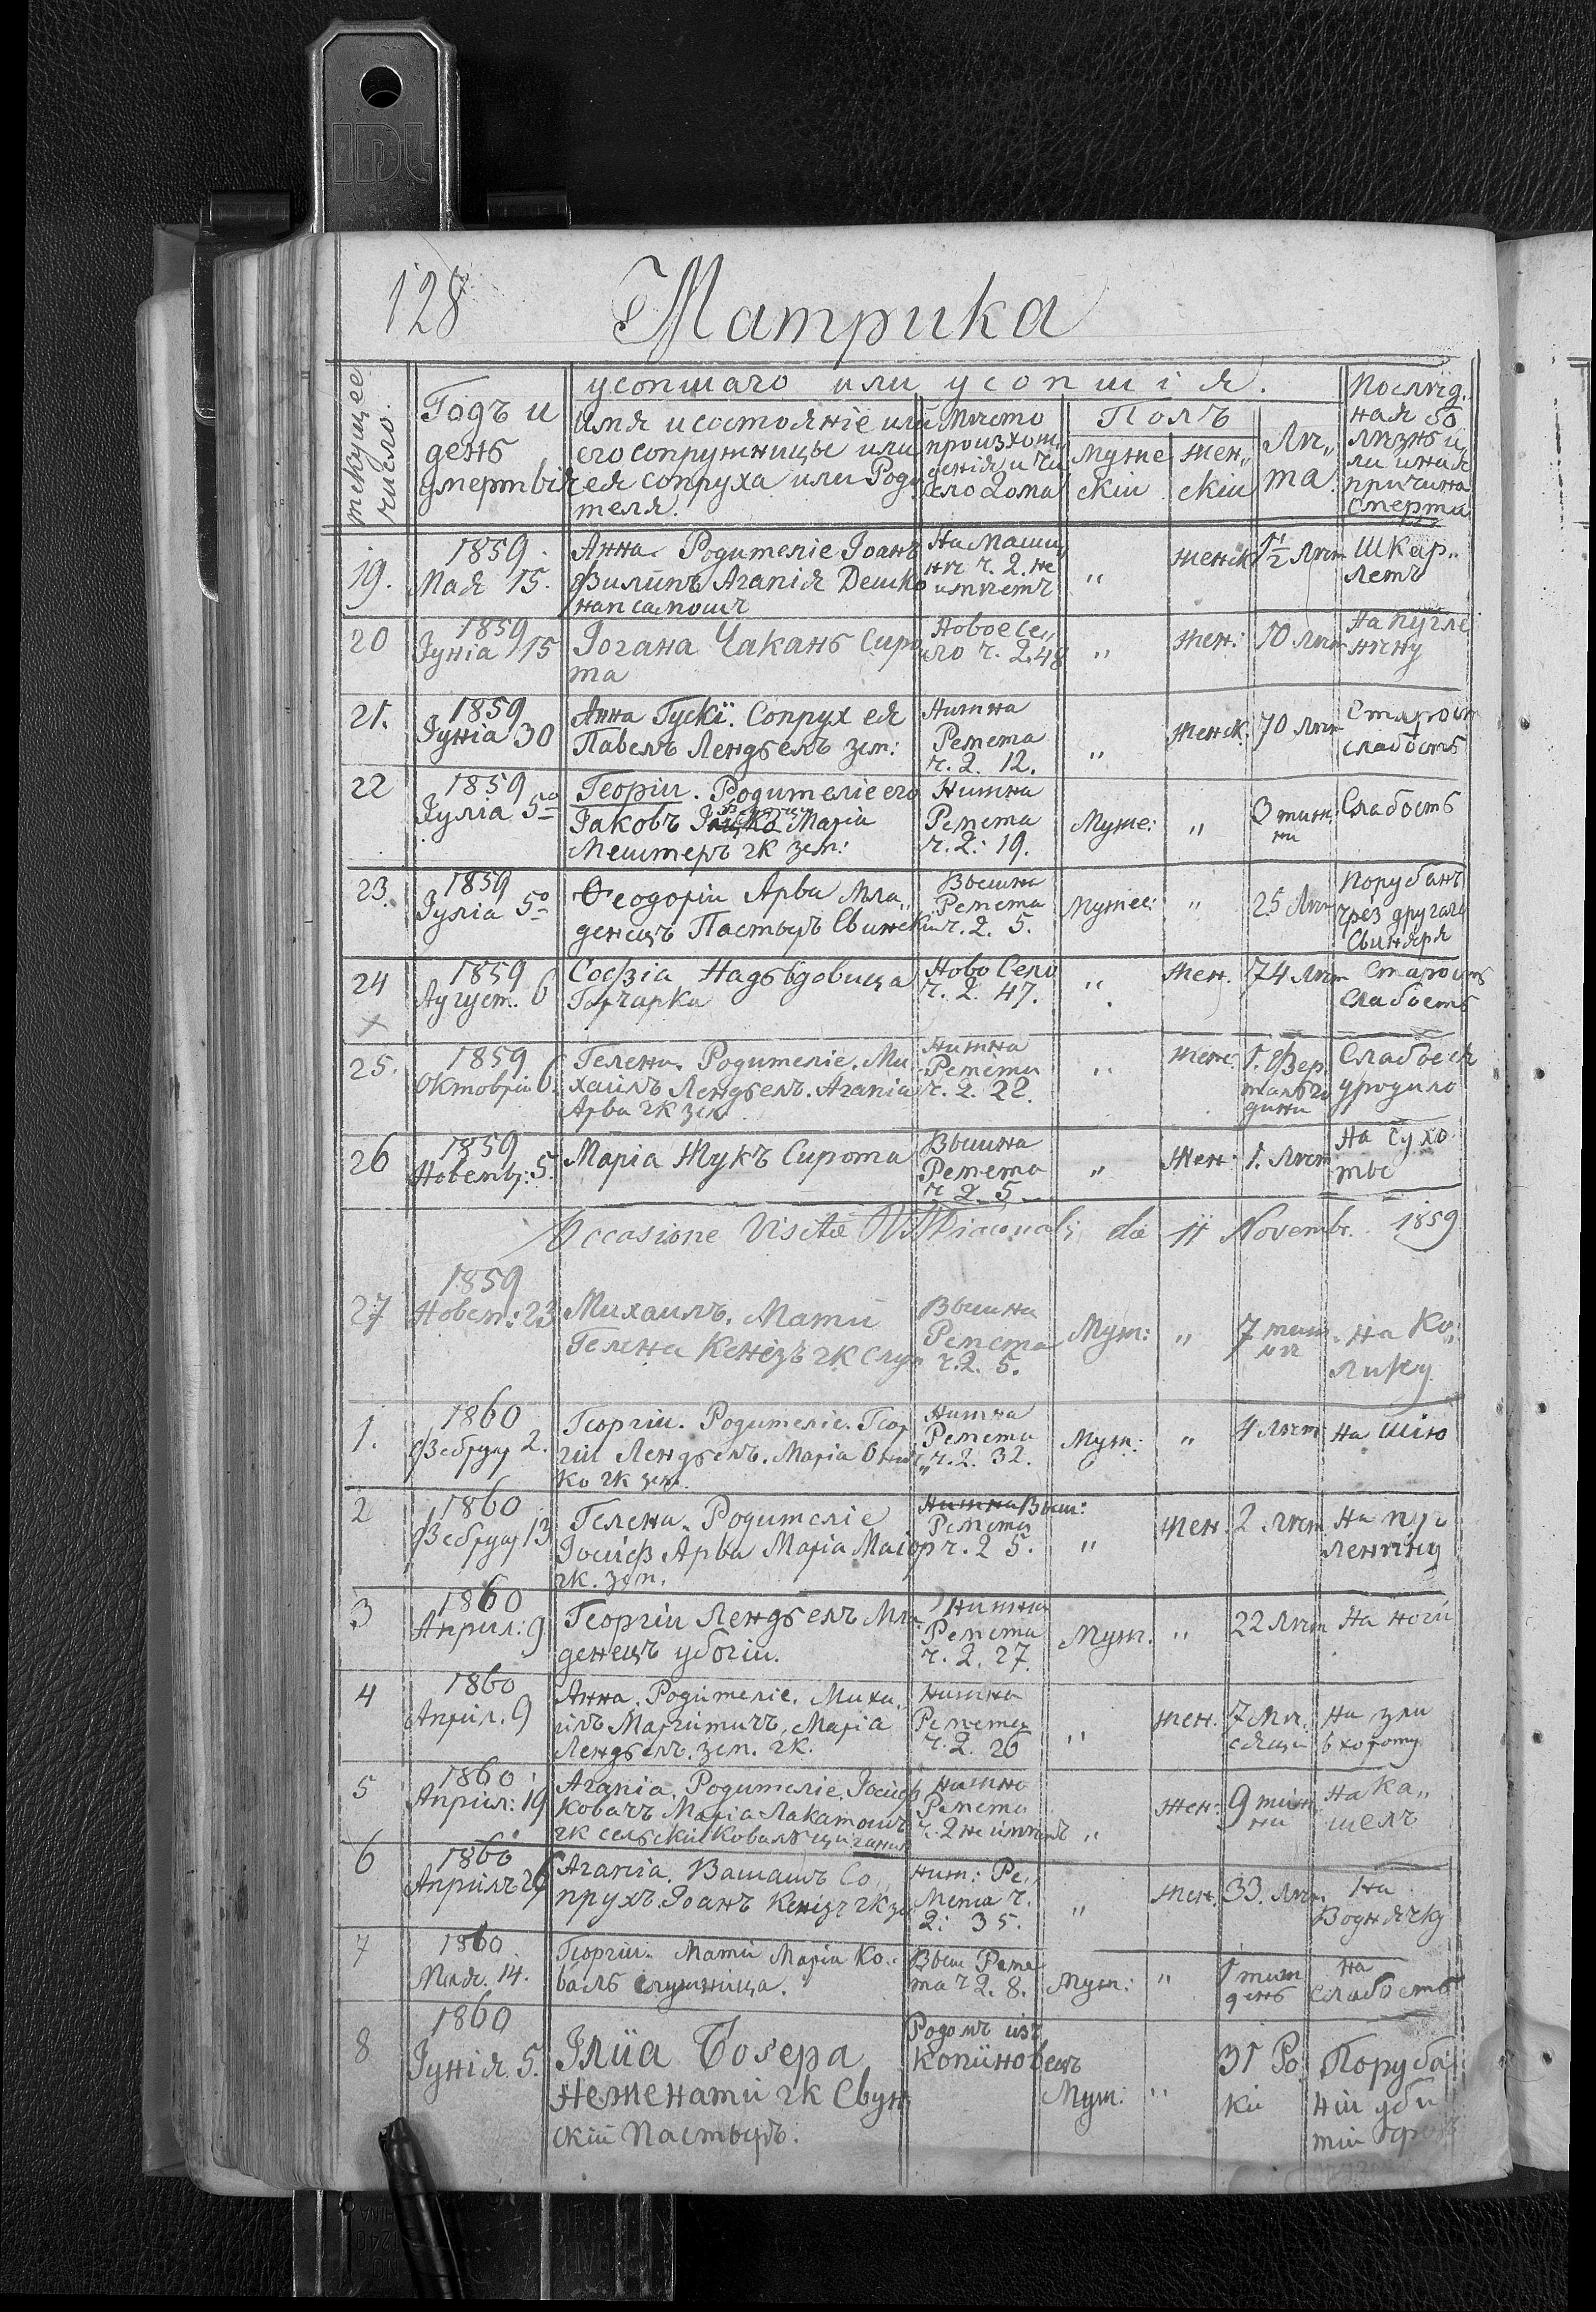 128 Матрика
текущее число.
Годъ и день умертвія
усопшаго или усопшія.
Имя и состояніе или его сопружницы или ея сопруха или Родителя.
Мѣсто произхожденія и число Дома
Полъ
Муже скіи
жен,, скіи
Лѣ,, та
Послѣд. ная бо лѣзнь и ли иная причина Смерти
19.
1859
Мая 15.
Анна. Родителіе Іоанъ
Филипъ Агапія Дешко
напсамошъ
На Маши,,
нѣ ч. Д. не
имѣетъ
,,
женск
1 1/2 лѣт
Шкар,,
летъ
20
1859
Іунія 15
Іогана Чакань Сиро
та
Новое Се,,
ло ч. Д. 48
,,
жен:
10 лѣт
На пугле
нѣну
21.
1859
Іунія 30
Анна Гускї. Сопрух ея
Павелъ Лендьелъ зем:
Нижна
Ремета
ч. Д. 12.
,,
женск.
70 лѣт
Старост
слабость
22
1859
Іулія 5го
Георіи. Родителіе его
Іаковъ Марія
Мештеръ гк зем:
Нижна
Ремета
ч. Д: 19.
Муже:
,,
3 тиж
ни
Слабость
23.
1859
Іулія 5о
Ѳеодоріи Арва Мла,,
денецъ Пастырь Свинскіи
Вышна
Ремета
ч. Д. 5.
Мужес:
,,
25 Лѣт
Порубанъ
чрез другаго
Свинаря
24
×
1859
Аугуст. 6
Софзіа Надь вдовица
Гончарка
Ново Село
ч. Д. 47.
,,
жен.
74 лѣт
Старость
Слабость
25.
1859
Октовріа 6.
Гелена. Родителіе. Ми
хаилъ Лендьелъ. Агапіа
Арва гк зем
Нижна
Ремета
ч. Д. 22.
,,
женс:
1. Фер
таль го
дини
Слабое ся
уродило
26
1859
Новембр: 5.
Маріа Жукъ Сирота
Вышна
Ремета
ч Д. 5.
,,
Жен:
1. лѣт
На сухо
тые
Occasione Visitae VADiaconalis die 11 Novembr. 1859
27
1859
Новем: 23
Михаилъ. Мати
Гелена Кенізъ гк Служ
Вышна
Ремета
ч Д. 5.
Муж:
,,
7 тиж
нѣ
На Ко,,
лику
1.
1860
Фебруар 2.
Георгіи. Родителіе. Геор
гіи Лендьелъ. Маріа Онис
ко гк зем.
Нижна
Ремета
ч. Д. 32.
Муж:
,,
4 лѣт
на шію
2
1860
Фебруар 13
Гелена. Родителіе
Іосиф Арва Маріа Маіор
гк. зем.
Нижна Выш:
Ремета
ч. Д 5.
,,
жен.
2 лѣт
На пуг
ленѣну
3
1860
Април: 9
Георгіи Лендьелъ Мла
денецъ убогіи.
Нижна
Ремета
ч. Д. 27.
Муж.
,,
22 лѣт
На ноги
4
1860
Април. 9
Анна. Родителіе. Миха
илъ Маргитичъ, Маріа
Лендьелъ. зем. гк.
Нижна
Ремета
ч. Д. 26
,,
жен.
7 Мѣ.
сяци
На зли
вхороту
5
1860
Април: 19
Агапіа. Родителіе. Іосиф
Ковачъ Маріа Лакатошъ
гк сельскіи Коваль циганин
Нижна
Ремета
ч. Д не имѣетъ
,,
жен:
9 тиж
ни
на ка,,
шелъ
6
1860
Априлъ 26
Агапіа. Вашашъ Со,,
прухъ Іоанъ Кенізъ гк зе
Ниж: Ре,,
мета ч.
Д: 35.
,,
жен.
33. лѣт.
На
Воднячку
7
1860
Мая. 14.
Георгіи. Мати Маріа Ко,,
валь служніца.
Выш Реме
та ч Д. 8.
Муж:
,,
1 тиж
день
На
слабость
8
1860
Іунія 5.
Іліїа Боѕера
Неженати гк Свун
скіи Пастырь.
Родомъ изъ
Копиновецъ
Муж:
,,
31 Ро
ки
Поруба
ніи уби
тіи